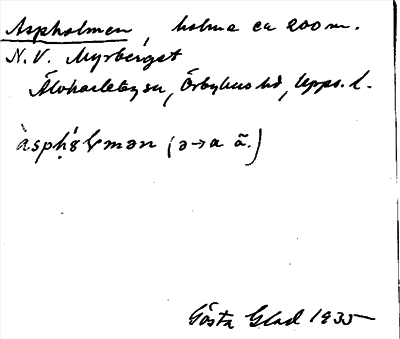 Aspholmen, holme ca 200 m.
N.V. Myrberget
Älvkarleby sn, Örbyhus hd, Upps. l.
(ə→a ä.)
Gösta Glad 1935